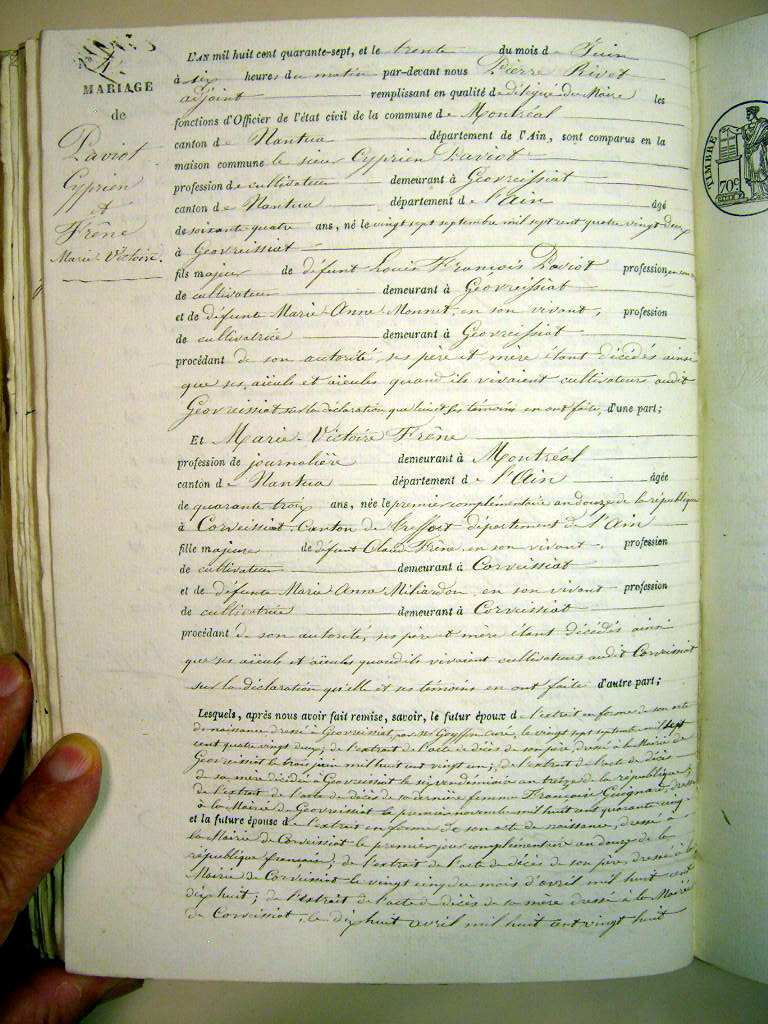 MARIAGE
de
Paviot
Cyprien
et
Frêne
Marie Victoire.
L'AN mil huit cent quarante-sept, et le trente du mois de Juin
à six heures du matin par-devant nous Pierre Rivot
adjoint remplissant en qualité de délégué du Maire les
fonctions d'Officier de l'état civil de la commune de Montréal
canton de Nantua département de l'Ain, sont comparus en la
maison commune le sieur Cyprien Paviot
profession de cultivateur demeurant à Geovreissiat
canton de Nantua département de l'Ain âgé
de soixante quatre ans, né le vingt sept septembre mil sept cent quatre vingt deux
à Geovreissiat
fils majeur de défunt Louis François Paviot profession
de cultivateur demeurant à Geovreissiat
et de défunte Marie Anne Monnet, en son vivant, profession
de cultivatrice demeurant à Geovreissiat
procédant de son autorité, ses père et mère étant décédés ainsi
que ses aïeuls et aïeules quand ils vivaient cultivateurs audit
Geovreissiat sur la déclaration que lui et ses témoins en ont faite, d'une part;
Et Marie-Victoire Frêne
profession de journalière demeurant à Montréal
canton de Nantua département de l'Ain âgée
de quarante trois ans, née le premier complémentaire an douze de la république
à Corveissiat, Canton de Treffort département de l'Ain
fille majeure de défunt Claude Frêne, en son vivant, profession
de cultivateur demeurant à Corveissiat
et de défunte Marie Anne Miliardon, en son vivant profession
de cultivatrice demeurant à Corveissiat
procédant de son autorité, ses père et mère étant décédés ainsi
que ses aïeuls et aïeules quand ils vivaient cultivateurs audit Corveissiat
sur la déclaration qu'elle et ses témoins en ont faite d'autre part;
Lesquels, après nous avoir fait remise, savoir, le futur époux de l'extrait en forme de son acte
de naissance dressé à Geovreissiat, par curé, le vingt sept septembre mil sept
cent quatre vingt deux, de l'extrait de l'acte de décès de son père, dressé à la Mairie de
Geovreissiat le trois juin mil huit cent vingt un; de l'extrait de l'acte de décès
de sa mère décédée à Geovreissiat le six vendémiaire an treize de la république;
de l'extrait de l'acte de décès de sa dernière femme Françoise Guignard, dressé
à la Mairie de Geovreissiat le premier novembre mil huit cent quarante cinq
et la future épouse de l'extrait en forme de son acte de naissance, dressé à
la Mairie de Corveissiat le premier jour complémentaire an douze de la
république française, de l'extrait de l'acte de décès de son père, dressé à la
Mairie de Corveissiat le vingt cinq du mois d'avril mil huit cent
dix huit; de l'extrait de l'acte de décès de sa mère dressé à la Mairie
de Corveissiat, le dix huit avril mil huit cent vingt huit
TIMBRE
70c